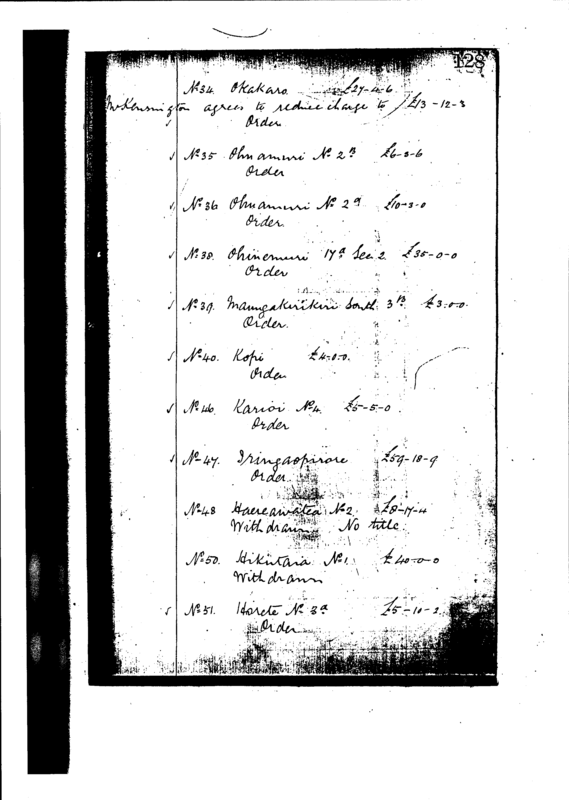 128
No 34. Okakaro £27-4-6
Mr Kensington agrees to reduce charge to £13-12-3
Order
No 35 Ohuamuri No 2B £6-3-6
Order
No 36 Ohuamuri No 2a £10-3-0
Order.
No 38. Ohinemuri 17a Sec 2 £35-0-0
Order
No 39. Maungakirikiri South 3B £3.0.0.
Order.
No 40. Kopi £4.0.0.
Order
No 46. Karioi No 4. £5-5-0
Order
No 47. £59-18-9
Order
No 48 Haereawatea No 2 £8-17-4
Withdrawn No title.
No 50. Hikutaia No 1. £40-0-0
Withdrawn
No 51. Horete No 3a £5-10-2
Order